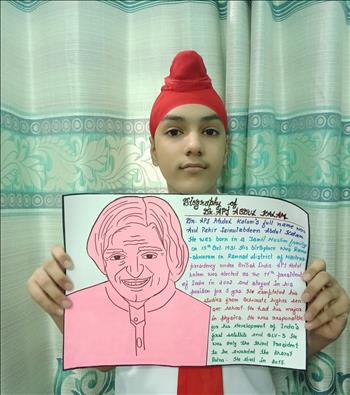 Biography of
Dr. APJ ABDUL KALAM.
Dr. APJ Abdul Kalam's full name was
Avul Pakir Jainulabdeen Abdul Kalam.
He was born in a Tamil Muslim family
on 15th Oct 1931. His birthplace was Rame
-swaram in Ramnad district of Madras
presidency under British India. APJ Abdul
kalam was elected as the 11th president
of India in 2002 and stayed in his
position for 5 years. He completed his
studies from Schwartz higher sen-
had his majors
in physics. He was responsible
for the development of India's
first satellite and SLV-3. He
was only the third President
to be awarded the Bharat
Ratna. He died in 2015.